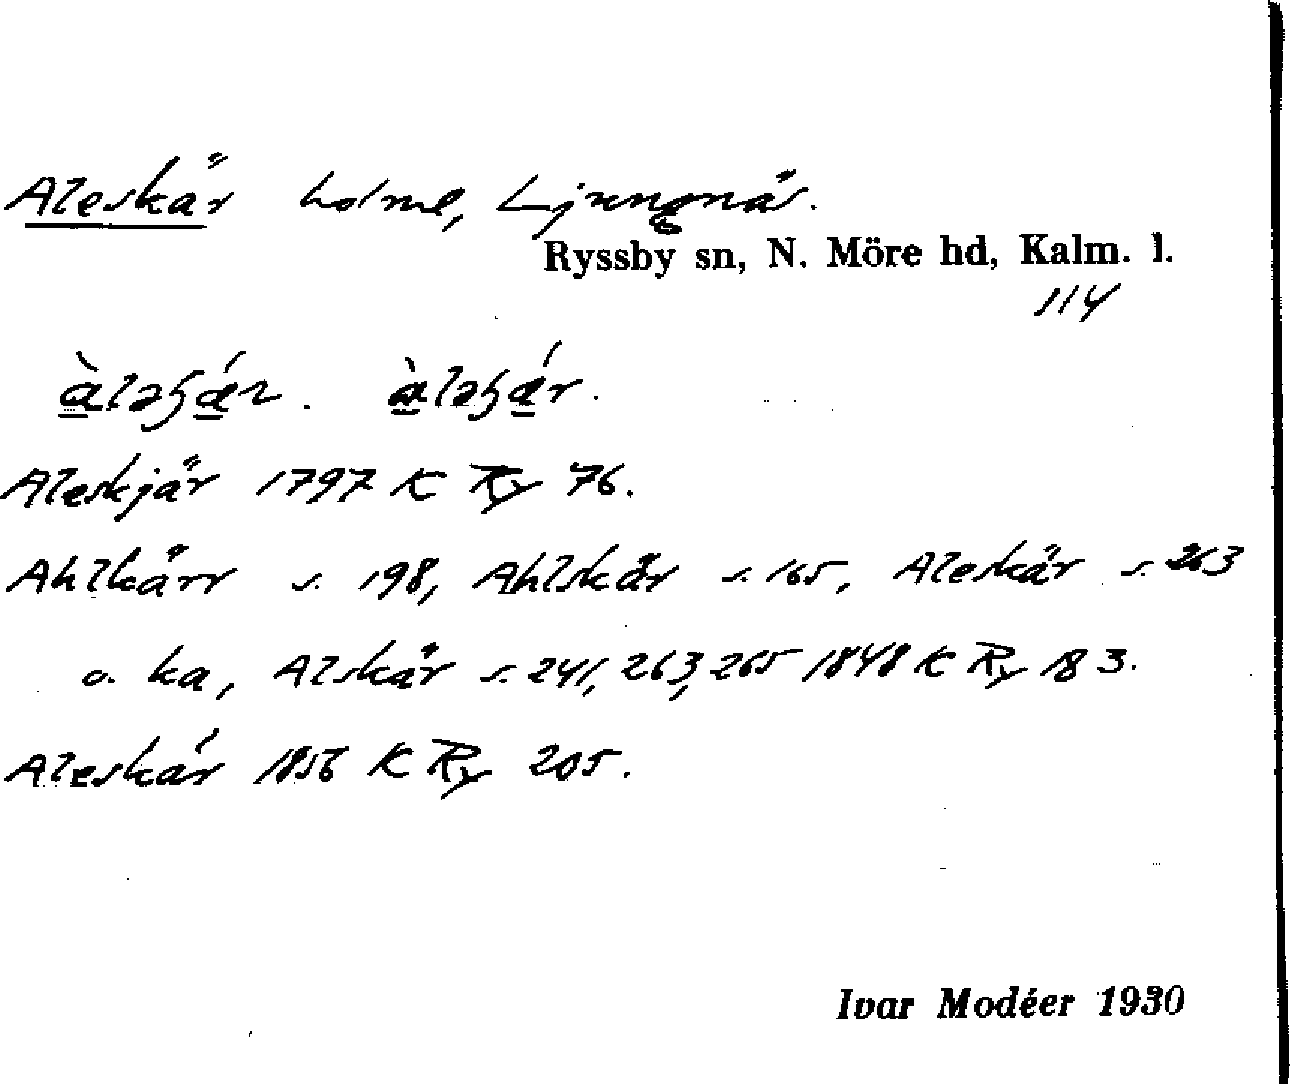 Aleskär holme, Ljungnäs.
Ryssby sn, N. Möre hd, Kalm. l.
114
Aleskjär 1797 K Ry 76.
Ahlkärr s. 198, Ahlskär s. 165, Aleskär s. 263
o. ka, Alskär s. 241, 263, 265 1848 K Ry 183.
Aleskär 1856 K Ry 205.
Ivar Modéer 1930